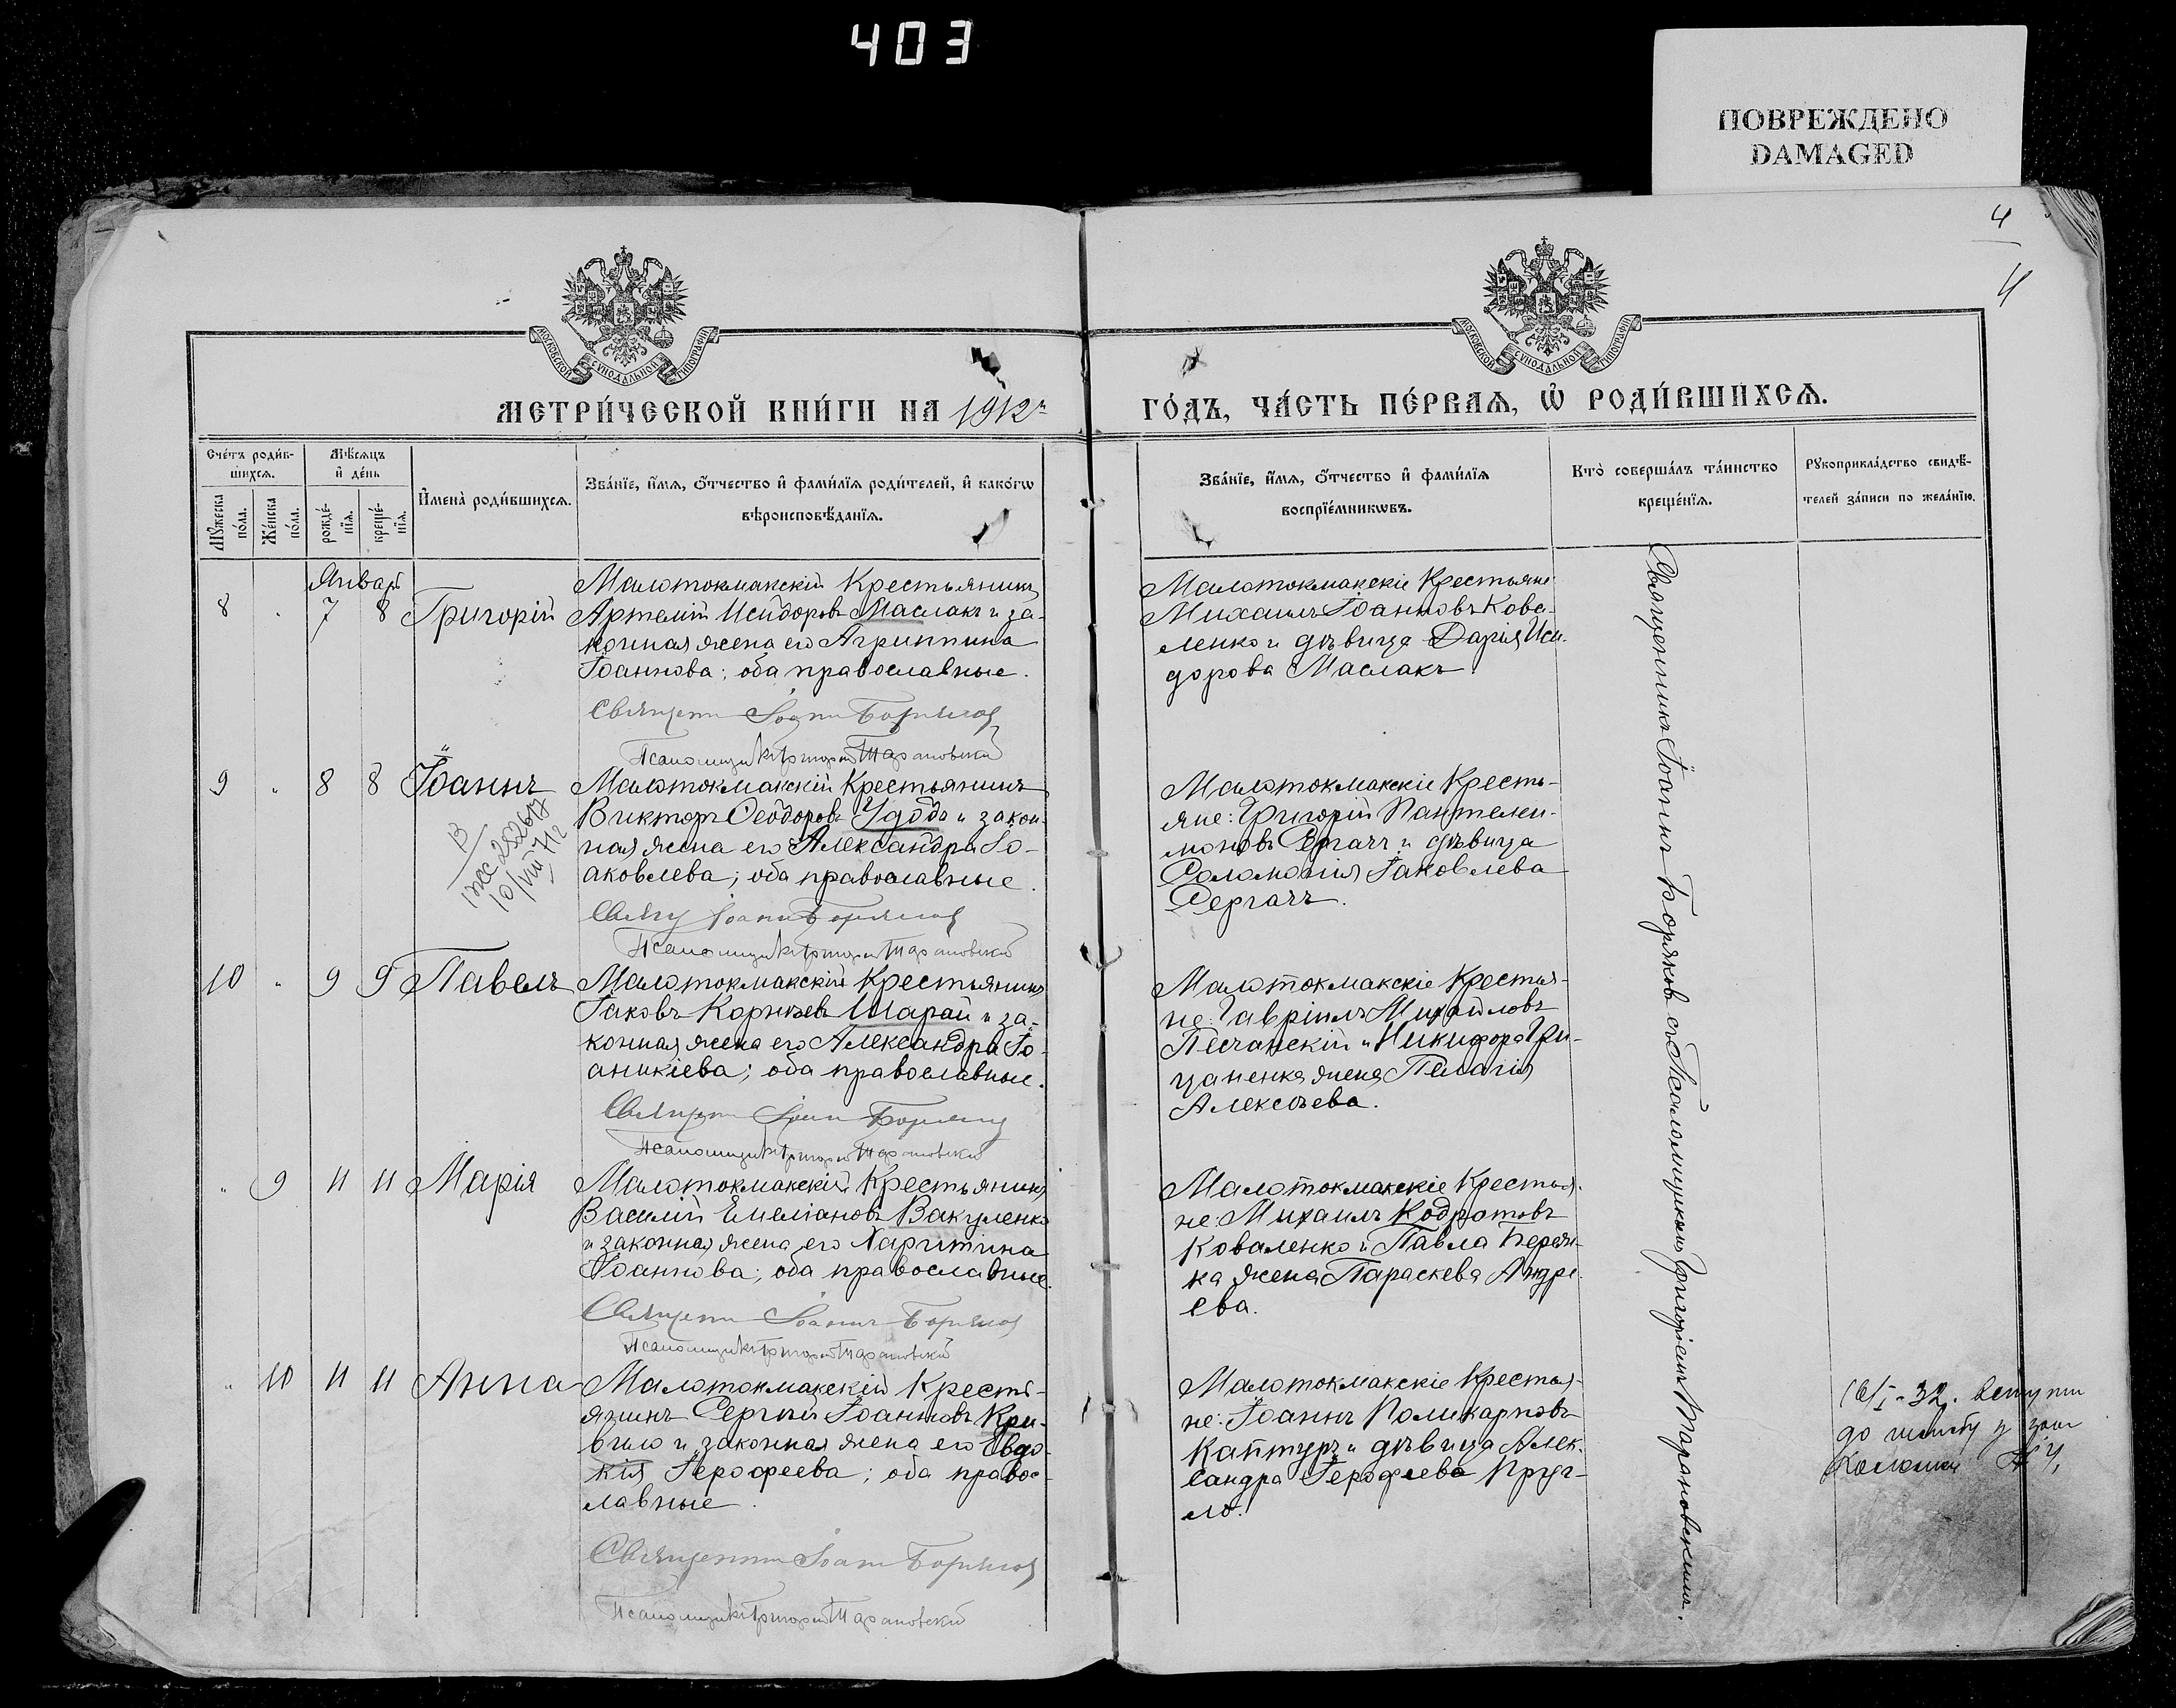 403
ПОВРЕЖДЕНО
DAMAGED
4
4
МОСКОВСКОЙ СѴНОДАЛЬНОЙ ТИПОГРАФІИ
МОСКОВСКОЙ СѴНОДАЛЬНОЙ ТИПОГРАФІИ
МЕТРИ́ЧЕСКОЙ КНИ́ГИ НА 1912й
ГО́ДЪ, ЧА́СТЬ ПЕ́РВАѦ, Ѡ҆ РОДИ́ВШИХСѦ.
Сче́тъ роди́в-
шихсѧ.
Мѣ́сѧцъ
и҆ де́нь
Мꙋ́жеска
по́ла.
Же́нска
по́ла.
рожде́-
нїѧ.
креще́-
нїѧ.
И҆мена̀ роди́вшихсѧ.
Зва́нїе, и҆́мѧ, ѻ҆́тчество и҆ фами́лїѧ роди́телей, и҆ како́гѡ
вѣроисповѣ́данїѧ.
Зва́нїе, и҆́мѧ, ѻ҆́тчество и҆ фами́лїѧ
воспрїе́мникѡвъ.
Кто̀ соверша́лъ та́инство
креще́нїѧ.
Рꙋкоприкла́дство свидѣ́-
телей за́писи по жела́нїю.
Январь
8 " 7 8 Григорій
Малотокмакскій Крестьянинъ
Артемій Исидоровъ Маслакъ и за-
конная жена его Агриппина
Іоаннова; оба православные.
Священ Іоаннъ Боряков
Псаломщикъ Григорій Тарановскій
Малотокмакскіе Крестьяне
Михаилъ Іоанновъ Кова-
ленко и дѣвица Дарія Иси-
дорова Маслакъ.
9 " 8 8 Іоаннъ
10/VIII 71г
Малотокмакскій Крестьянинъ
Викторъ Ѳеодоровъ Удода и закон-
ная жена его Александра Іо-
аковлева; оба православные.
Свящ Іоаннъ Боряков
Псаломщикъ Григорій Тарановскій
Малотокмакскіе Кресть-
яне: Григорій Пантелеи-
моновъ Сергачъ и дѣвица
Соломонія Іаковлева
Сергачъ.
10 " 9 9 Павелъ
Малотокмакскій Крестьянинъ
Іаковъ Корнѣевъ Шарай и за-
конная жена его Александра Іо-
аникіева; оба православные.
Священ Іоан Боряков
Псаломщикъ Григорій Тарановскій
Малотокмакскіе Крестья-
не: Гавріилъ Михайловъ
Песчанскій и Никифора Гри-
цаненка жена Пелагія
Алексѣева.
" 9 11 11 Марія
Малотокмакскій Крестьянинъ
Василій Емеліановъ Вакуленко
и законная жена его Харитина
Іоаннова; оба православные.
Священ Іоаннъ Боряков
Псаломщикъ Григорій Тарановскій
Малотокмакскіе Крестья-
не: Михаилъ Кодратовъ
Коваленко и Павла
ка жена Параскева Андре-
ева.
" 10 11 11 Анна
Малотокмакскій Кресть-
янинъ Сергѣй Іоанновъ Кри-
вчло и законная жена его Евдо-
кія Іерофеева; оба право-
лавные.
Священни Іоан Боряков
Псаломщикъ Григорій Тарановскій
Малотокмакскіе Крестья-
не: Іоаннъ Поликарповъ
Каптуръ и дѣвица Алек-
сандра Іерофеева Круг-
ло.
Священникъ Іоаннъ Боряковъ съ Псаломщикомъ Григоріемъ Тарановскимъ.
16/I-32.
до